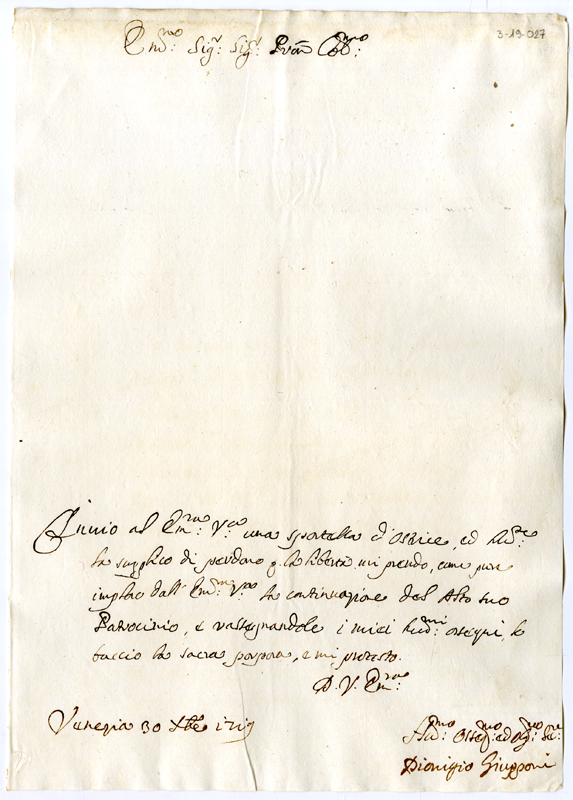 3-19-027
Em:mo Sig:r Sig:r Pron Col:mo
Invio all' Em:za V:ra una sportella d'Ostrice, ed hu:te
la supplico di perdono p la libertà mi prendo, come pure
imploro dall' Em:za V:ra la continuazione del Alto suo
Patrocinio, e rassegnandole i miei hu:mi ossequi, le
baccio la sacra porpora, e mi protesto.
D. V. Em:za
Venezia 30 Xbre 1719
Hu:mo Osseq:mo ed Obg:mo Se:re
Dionisio Giupponi